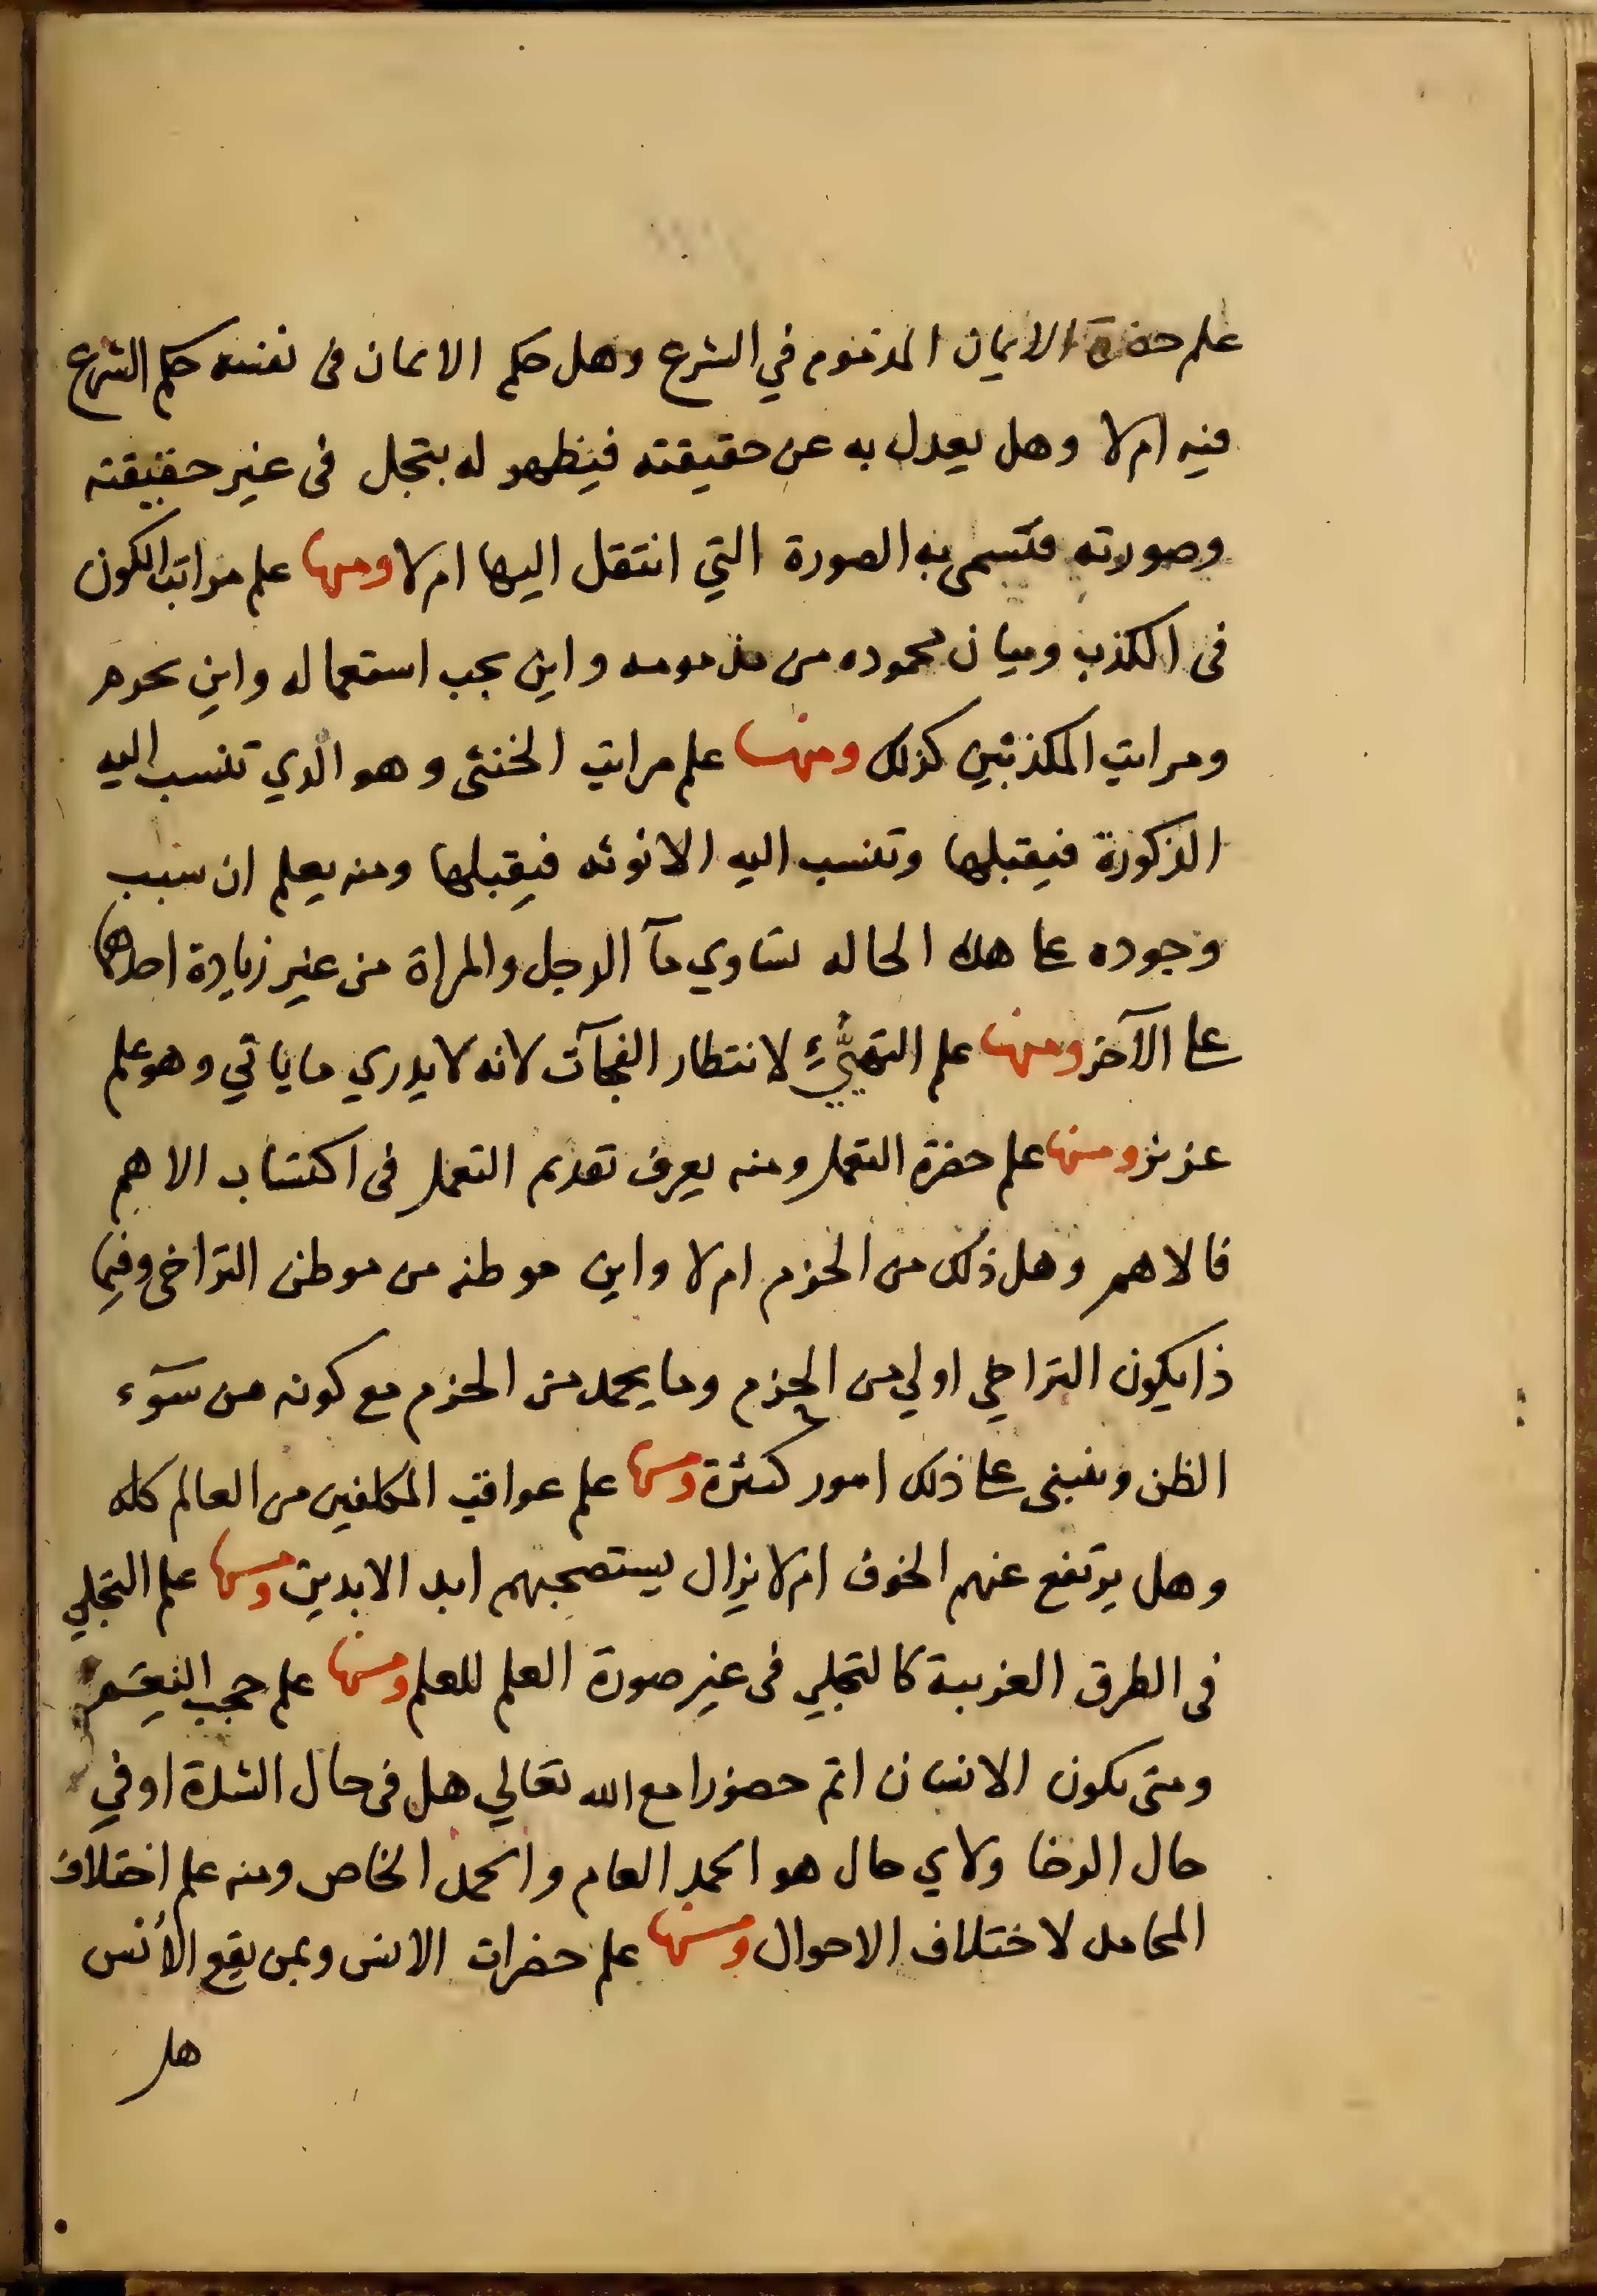 علم حضرة الايمان المذموم في الشرع وهل حكم الايمان فى نفسه حكم الشرع
فيه ام لا وهل يعدل به عن حقيقته فيظهر له بتجل فى غير حقيقته
وصورته فتسمى به الصورة التي انتقل اليها ام لا ومنها علم مراتب الكون
فى الكذب وبيان محموده من مذمومه واين يجب استعماله واين يحرم
ومراتب المكذبين كذلك ومنها علم مراتب الخنثى وهو الذي تنسب اليه
الذكورة فيقبلها وتنسب اليه الانوثه فيقبلها ومنه يعلم ان سبب
وجوده على هذه الحاله تساوي مآ الرجل والمراة من غير زيادة احدهما
على الآخر ومنها علم التهيُّئِ لانتظار الفجآت لانه لا يدري ما ياتي وهو علم
عزيز ومنها علم حضرة التعمل ومنه يعرف تقديم التعمل فى اكتساب الاهم
فالاهم وهل ذلك من الحزم ام لا واين موطنه من موطن التراخى وفيما
ذا يكون التراخي اولي من الحزم وما يحمد من الحزم مع كونه من سوٓء
الظن وينبنى على ذلك امور كثيرة ومنها علم عواقب المكلفين من العالم كله
وهل يرتفع عنهم الخوف ام لا يزال يستصحبهم ابد الابدين ومنها علم التجلي
فى الطرق الغريبة كالتجلي فى غير صورة العلم للعلم ومنها علم حجب النِعَم
ومتى يكون الانسان اتم حضورا مع الله تعالي هل فى حال الشدة او في
حال الرخا ولاي حال هو الحمد العام والحمد الخاص ومنه علم اختلاف
المحامد لاختلاف الاحوال ومنها علم حضرات الانس وبمن يقع الأنس
هل